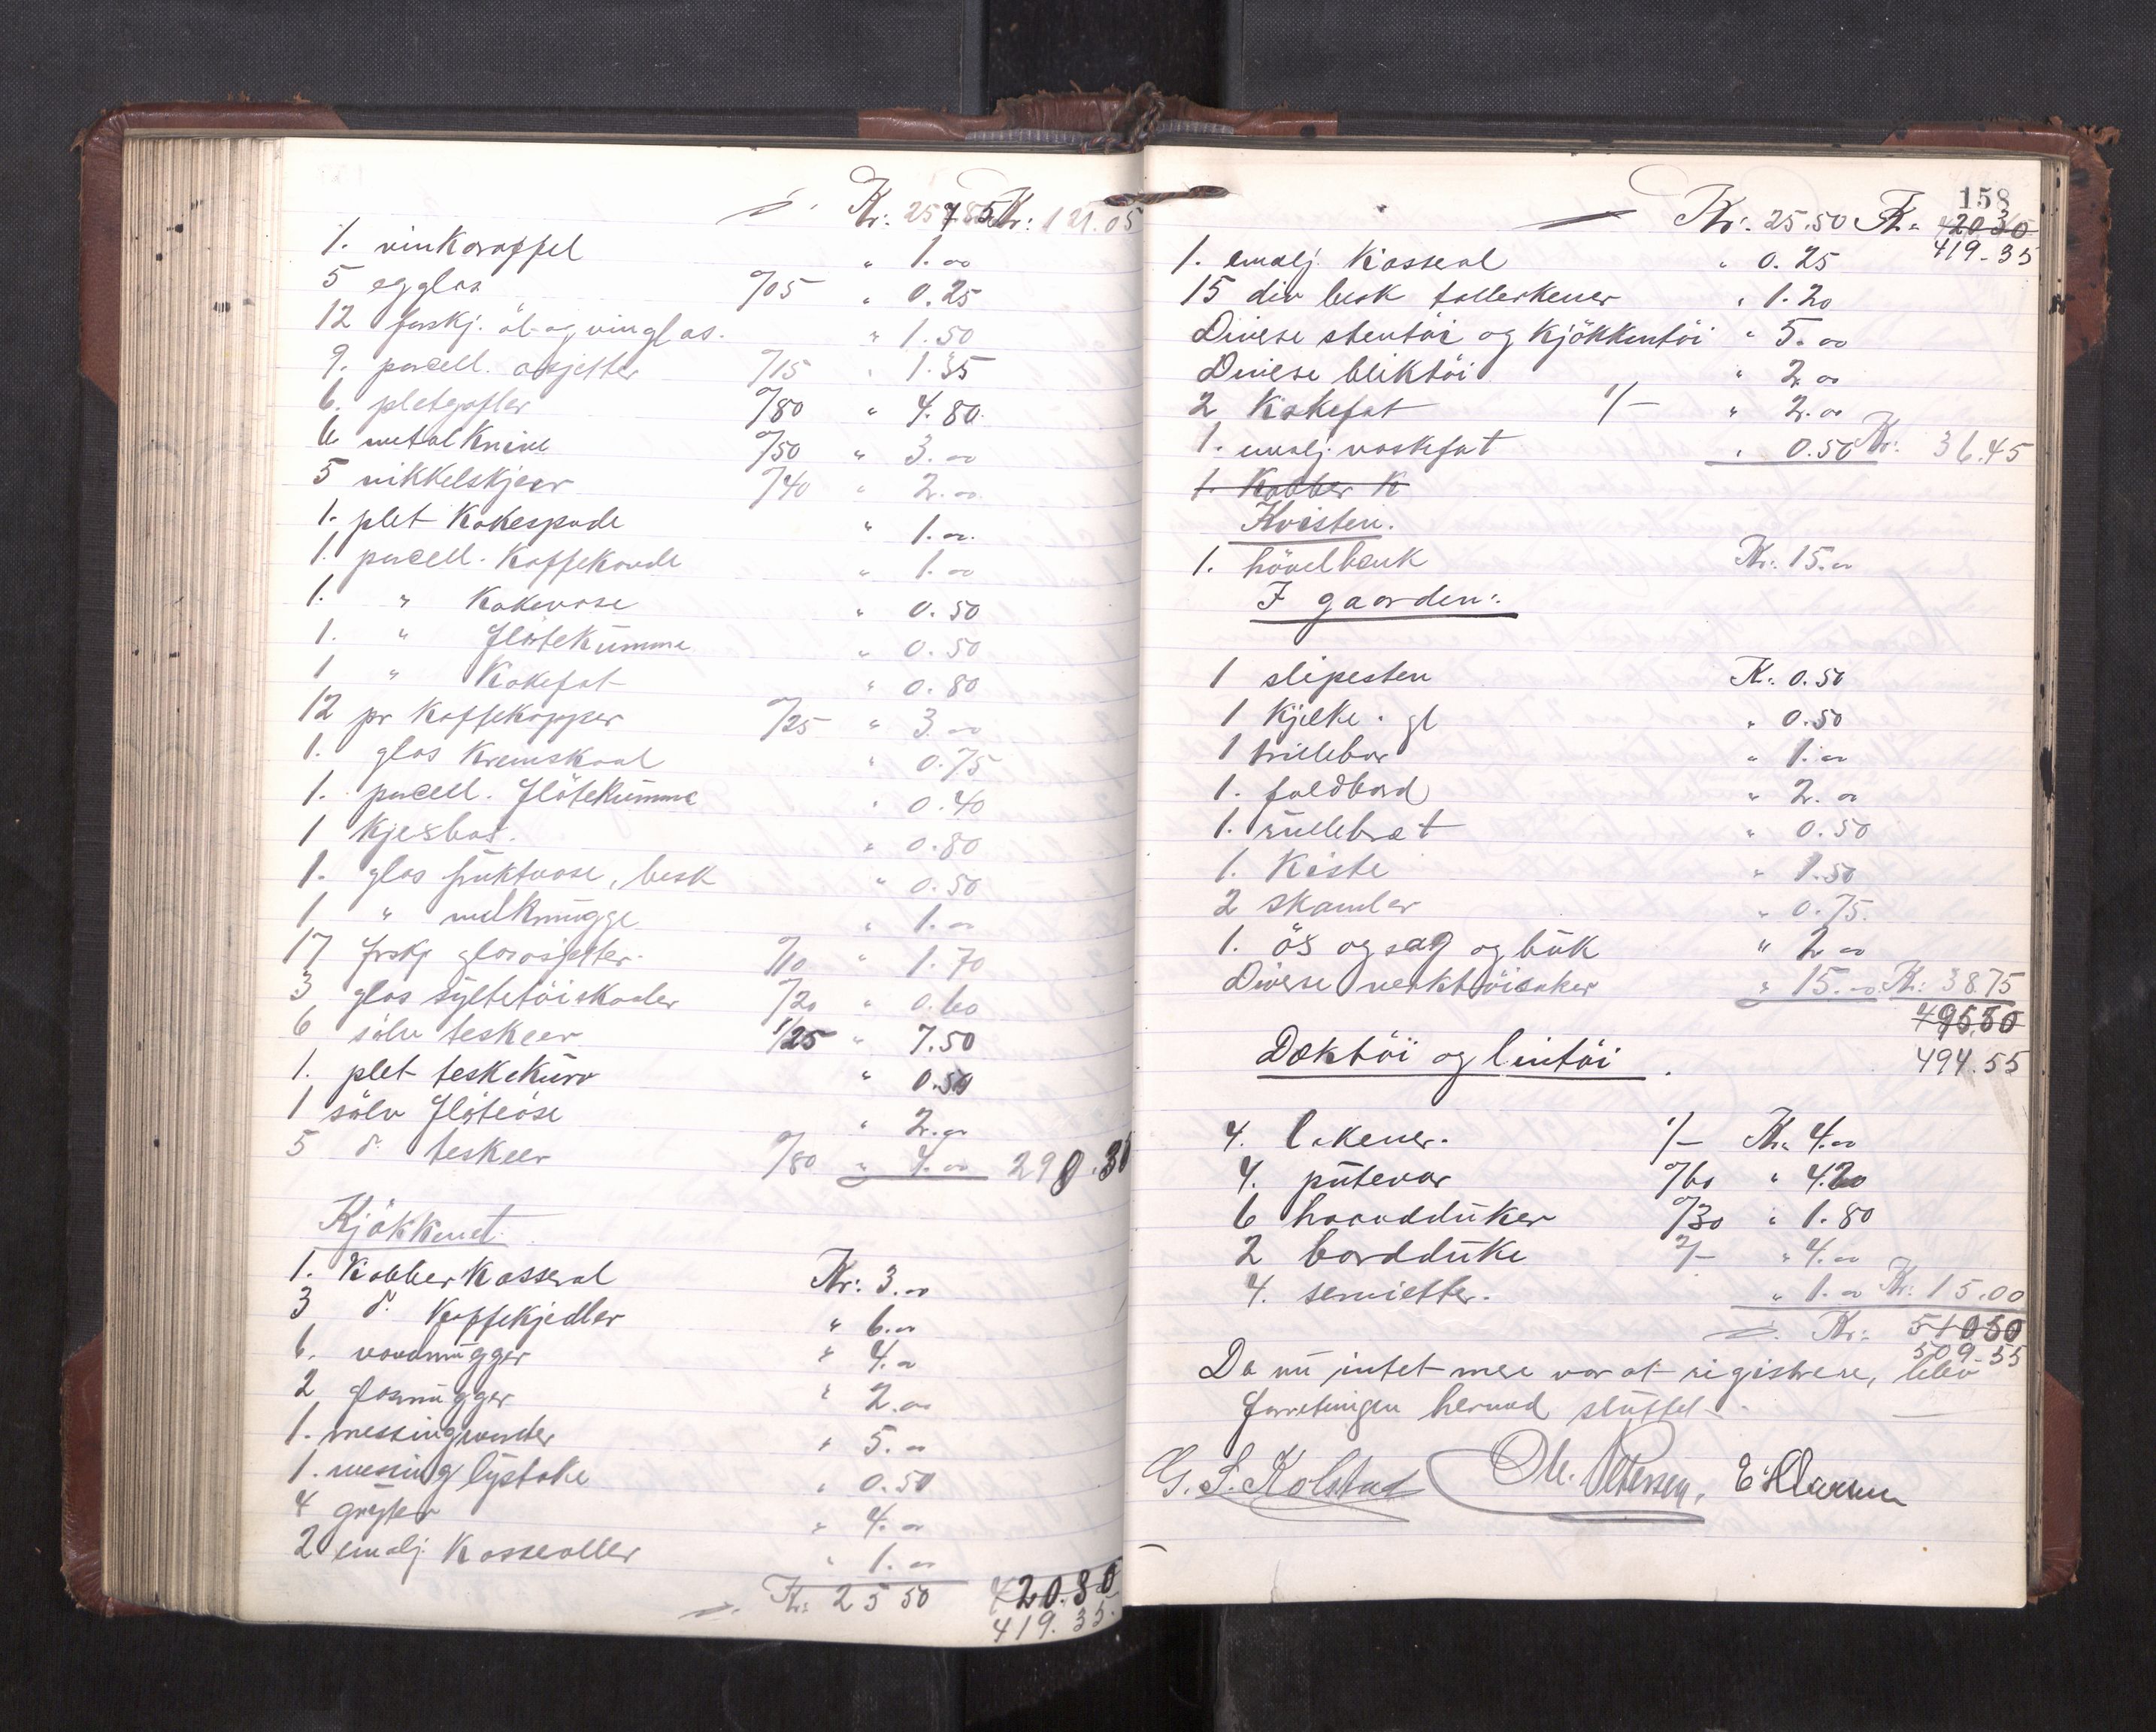 Kr: 257.85 Kr: 121.05
1. vinkaraffel " 1.00
5 egglas 0/05 " 0.25
12 forskj. öl- og vinglas. " 1.50
9. porcell. asjetter 0/15 " 1.35
6. pletgafler 0/80 " 4.80
6 metalknive 0/50 " 3.00
5 nikkelskjeer 0/40 " 2.00
1. plet Kakespade " 1.00
1. porcell. Kaffekande " 1.00
1. " Kakevase " 0.50
1. " flötekumme " 0.50
1 " Kakefat " 0.80
12 pr Kaffekopper 0/25 " 3.00
1. glas Kremskaal " 0.75
1. porcell. flötekumme " 0.40
1 Kjeksbas. " 0.80
1. glas fruktvase, besk " 0.50
1 " melkmugge " 1.00
17 forskj glasasjetter 0/10 " 1.70
3 glas syltetöiskaaler 0/20 " 0.60
6 sölv teskeer 1/25 " 7.50
1. plet teskekurv " 0.50
1 sölv flöteöse " 2.00
5 do. teskeer 0/80 " 4.00 298.30
Kjökkenet
1. Kobber Kasserol Kr: 3.00
3 do. Kaffekjedler " 6.00
6. vandmugger " 4.00
2 glasmugger " 2.00
1. messing " 5.00
1. messing lystake " 0.50
4 gryter " 4.00
2 emalj. Kasseroller " 1.00
Kr: 25 50 420.80
419.35.
158
Kr: 25.50 Kr: 42030
419-35
1. emalj. Kasserol " 0.25
15 div besk tallerkener " 1.20
Diverse stentöi og Kjökkentöi " 5.00
Diverse bliktöi " 2.00
2 Kakefat 1/- " 2.00
1. emalj. vaskefat " 0.50 Kr: 36.45
1. Kobber K
Kvisten.
1. hövelbenk Kr: 15.00
I gaarden:
1 slipesten Kr: 0.50
1 Kjelke. gl " 0.50
1 trillebor " 1.00
1. foldbord " 2.00
1. rullebræt " 0.50
1. Kiste " 1.50
2 skamler " 0.75.
1. öx og sag og buk " 2.00
Diverse verktöisaker " 15.00 Kr: 38.75
495.50
Dæktöi og lintöi. 494.55
4. lakener. 1/- Kr: 4.00
4. putevar 0/60 " 4.20
6 haandduker 0/30 " 1.80
2 bordduke 2/- " 4.00
4. servietter. " 1.00 Kr: 15.00
Kr: 51050
509.55
Da nu intet mere var at registrere, blev
forretningen hermed sluttet.
G. S. Kolstad Petersen. E. Larsen